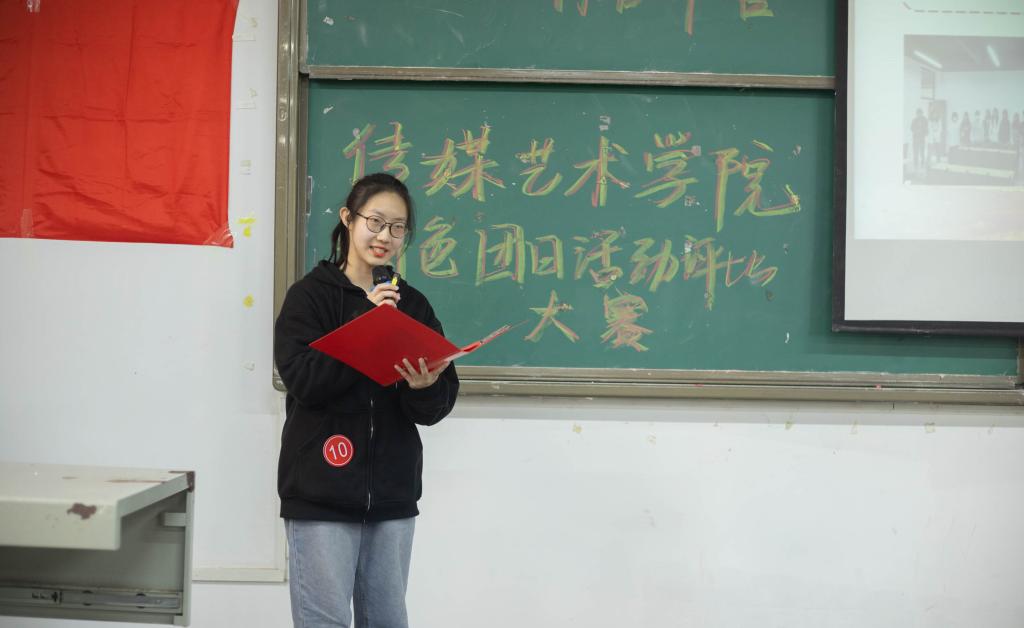 传媒艺术学院
色团日活动评比
大赛
10